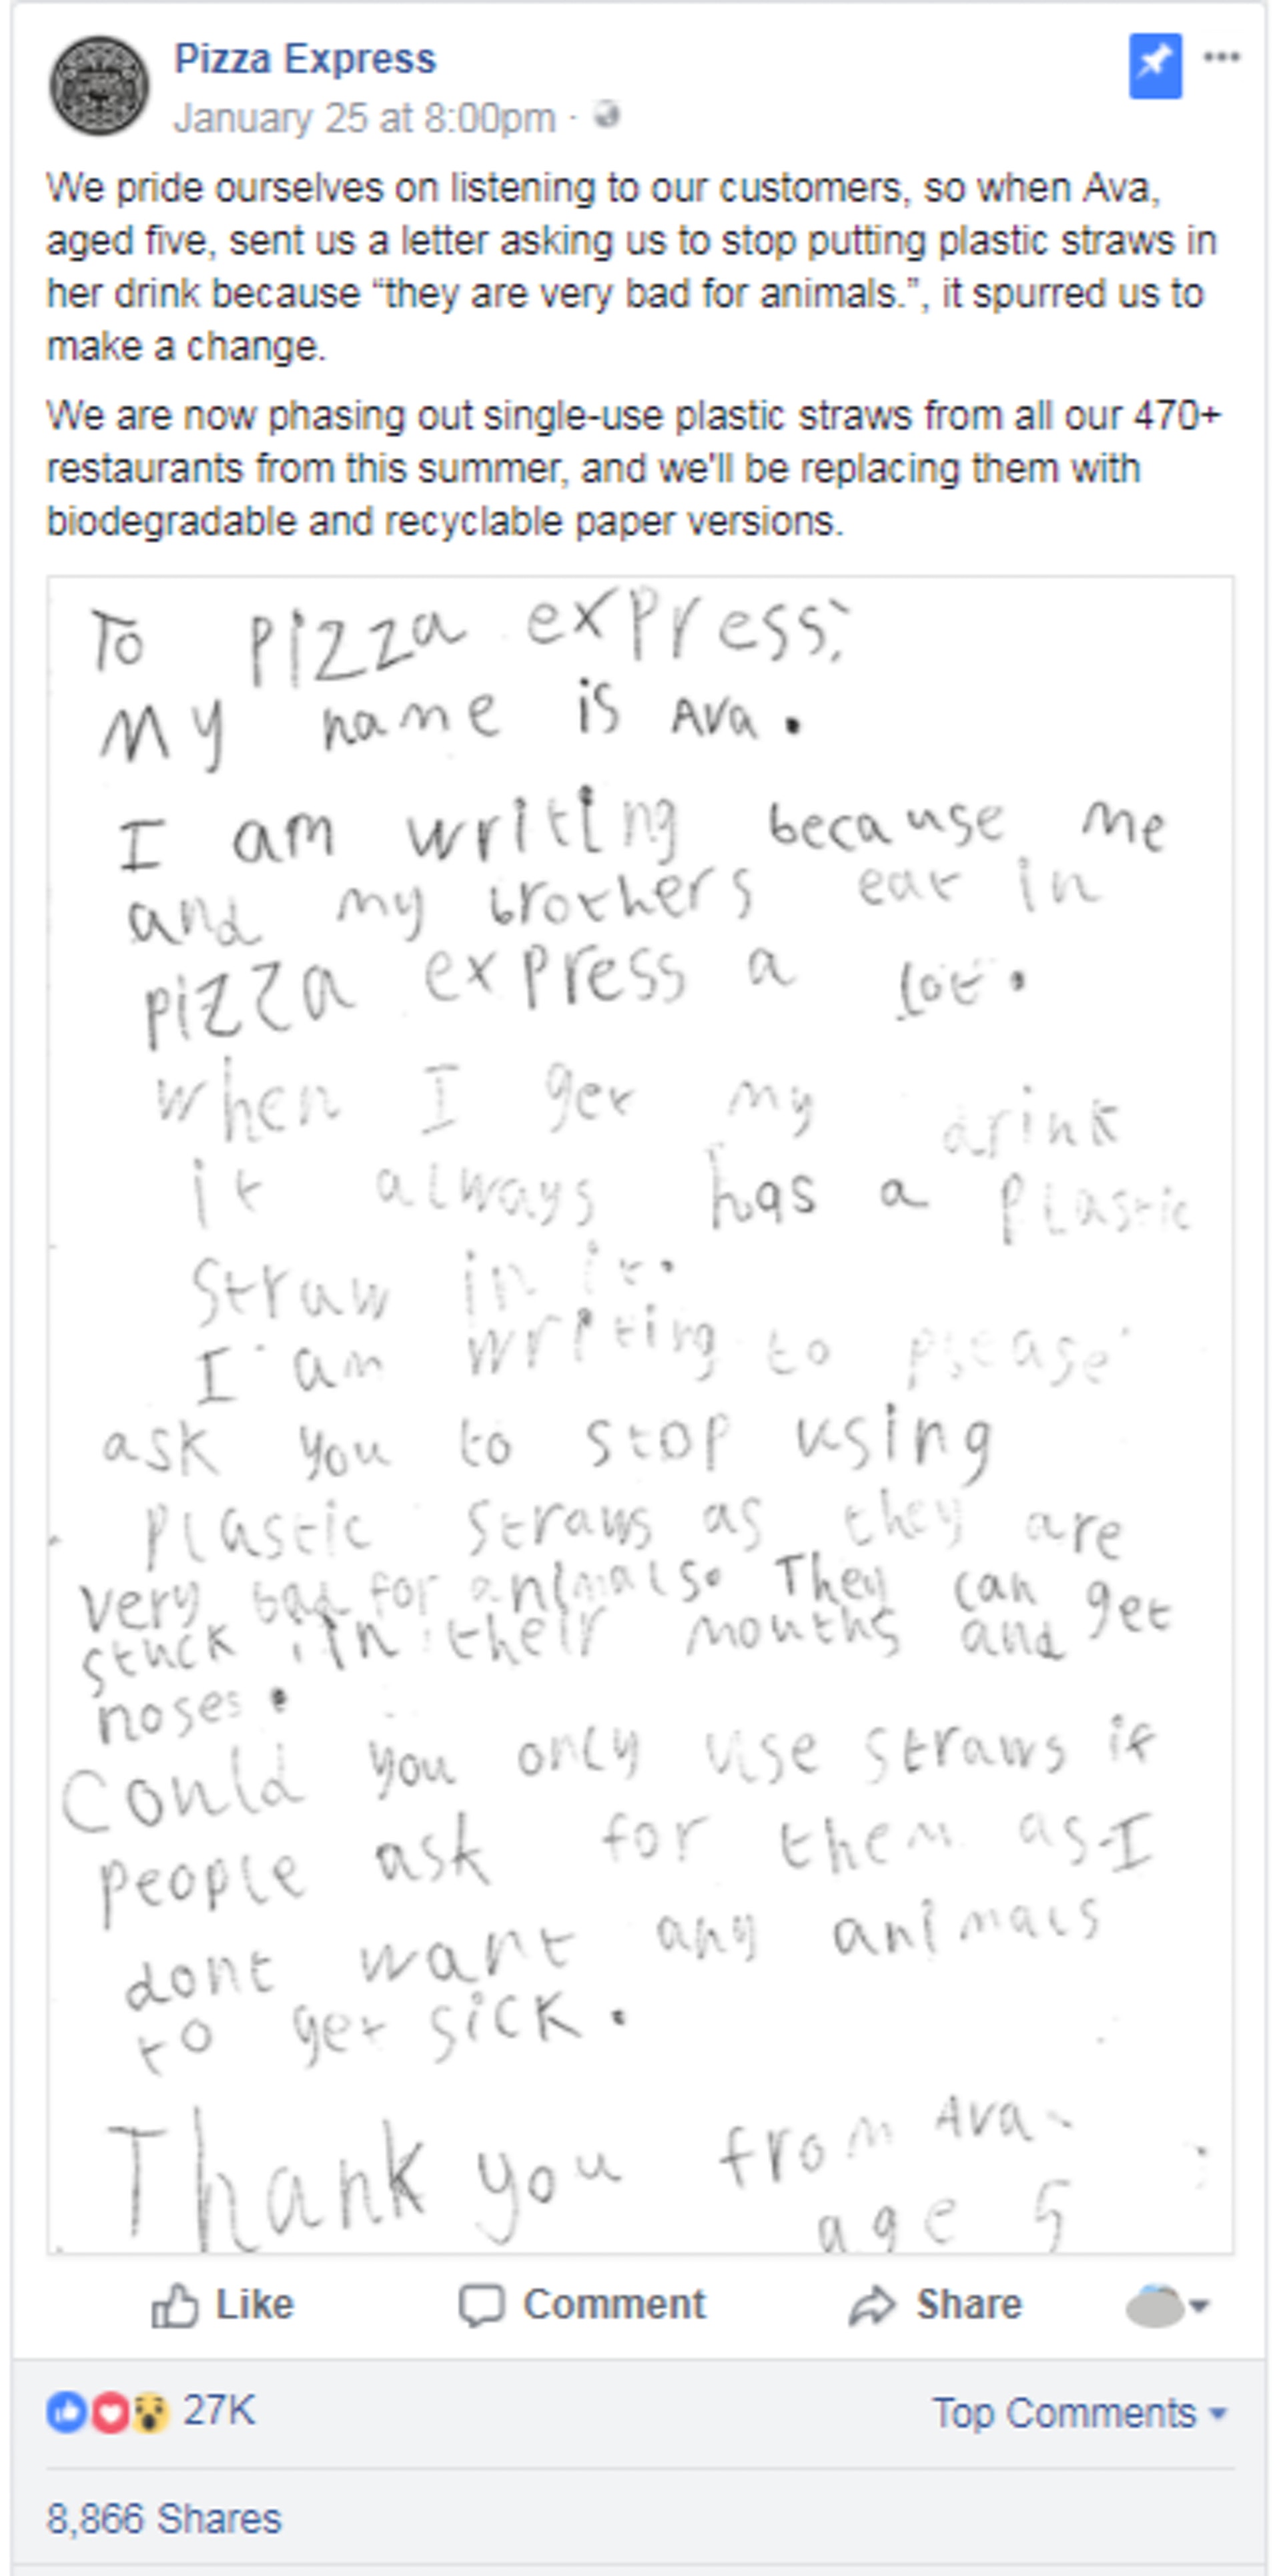 Pizza Express
January 25 at 8:00pm ·
We pride ourselves on listening to our customers, so when Ava,
aged five, sent us a letter asking us to stop putting plastic straws in
her drink because “they are very bad for animals.”, it spurred us to
make a change.
We are now phasing out single-use plastic straws from all our 470+
restaurants from this summer, and we'll be replacing them with
biodegradable and recyclable paper versions.
To Pizza express;
My name is Ava.
I am writing because me
and my brothers eat in
pizza express a lot.
When I get my drink
it always has a plastic
straw in it.
I am writing to please
ask you to stop using
plastic straws as they are
very bad for animals. They can get
stuck in their mouths and
noses.
Could you only use straws if
people ask for them as I
dont want any animals
to get sick.
Thank you from Ava
age 5
Like Comment Share
27K Top Comments
8,866 Shares